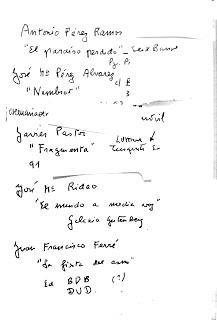 Antonio Pérez Ramos
"El paraíso perdido" - Seix Barral
José Mª Pérez Alvarez
"Nembrot"
móvil
Javier Pastor
"Fragmenta"
91
José Mª Ridao
"El mundo a media voz"
Galaxia Gutenberg
Juan Francisco Ferré
"La fiesta del asno"
Ed BDB (?)
DVD.